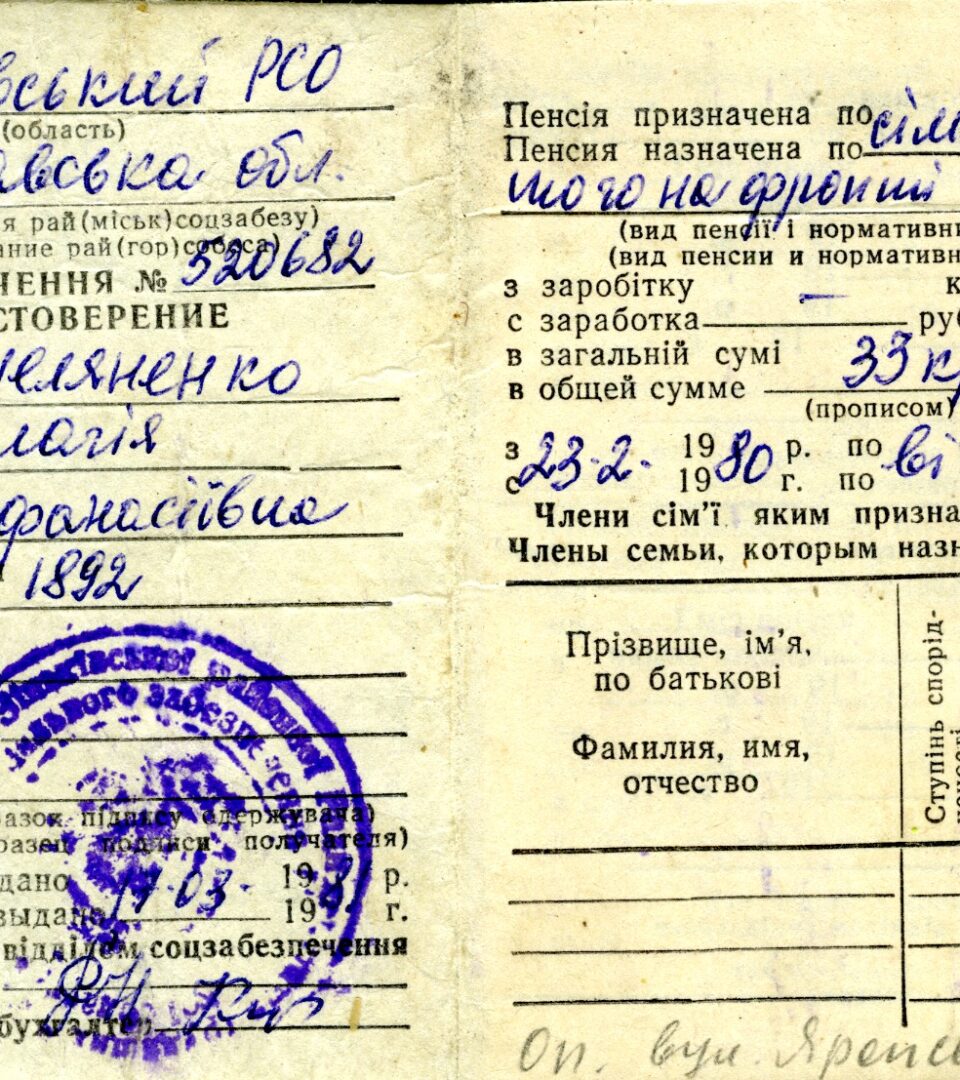 вський РСО
(область)
авська обл.
я рай(міськ)соцзабезу)
ание рай(гор)собеса)
ЧЕННЯ № 520682
СТОВЕРЕНИЕ
меляненко
лагія
фанасіївна
1892
Зіньківської районної
забезпечення
разок підпису одержувача)
разец подписи получателя)
дано 17.03. 198 р.
выдано 198 г.
відділом соцзабезпечення
бухгалтер
Пенсія призначена по сім
Пенсия назначена по
того на фронті
(вид пенсії і нормативни
(вид пенсии и нормативн
з заробітку — к
с заработка руб
в загальній сумі 33 к
в общей сумме
(прописом)
з 23.2. 1980 р. по ві
с 19 г. по
Члени сім'ї яким призна
Члены семьи, которым назн
Прізвище, ім'я,
по батькові
Фамилия, имя,
отчество
Ступінь спорід-
неності
Оп. вул.